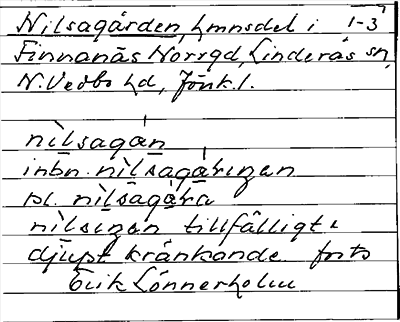 Nilsagården, hmnsdel i 1-3
Finnanäs Norrgd, Linderås sn,
N. Vedbo hd, Jönk. l.
nìlsagán
inbn. nìlsagáriẓan
pl. nìlsagára
nìlsiẓan tillfälligt
djupt kränkande forts
Erik Lönnerholm